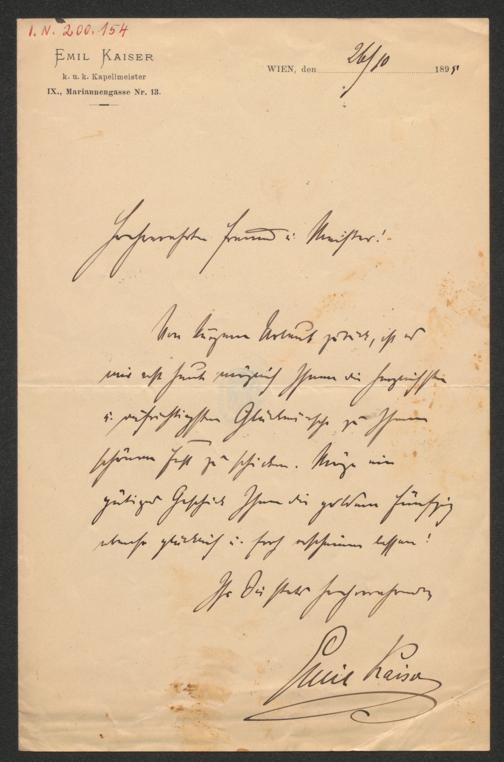 I. N. 200.154
EMIL KAISER
k. u. k. Kapellmeister
IX., Mariannengasse Nr. 13.
WIEN, den 26/10 1895
Hochverehrter Freund u. Meister!
Von kurzem Urlaub zurück, ist es
mir erst heute möglich Ihnen die herzlichsten
u. aufrichtigsten Glückwünsche zu Ihrem
schönen Fest zu schicken. Möge ein
gütiges Geschick Ihnen die goldenen fünfzig
ebenso glücklich u. froh erscheinen lassen!
Ihr Sie stets hochverehrender
Emil Kaiser